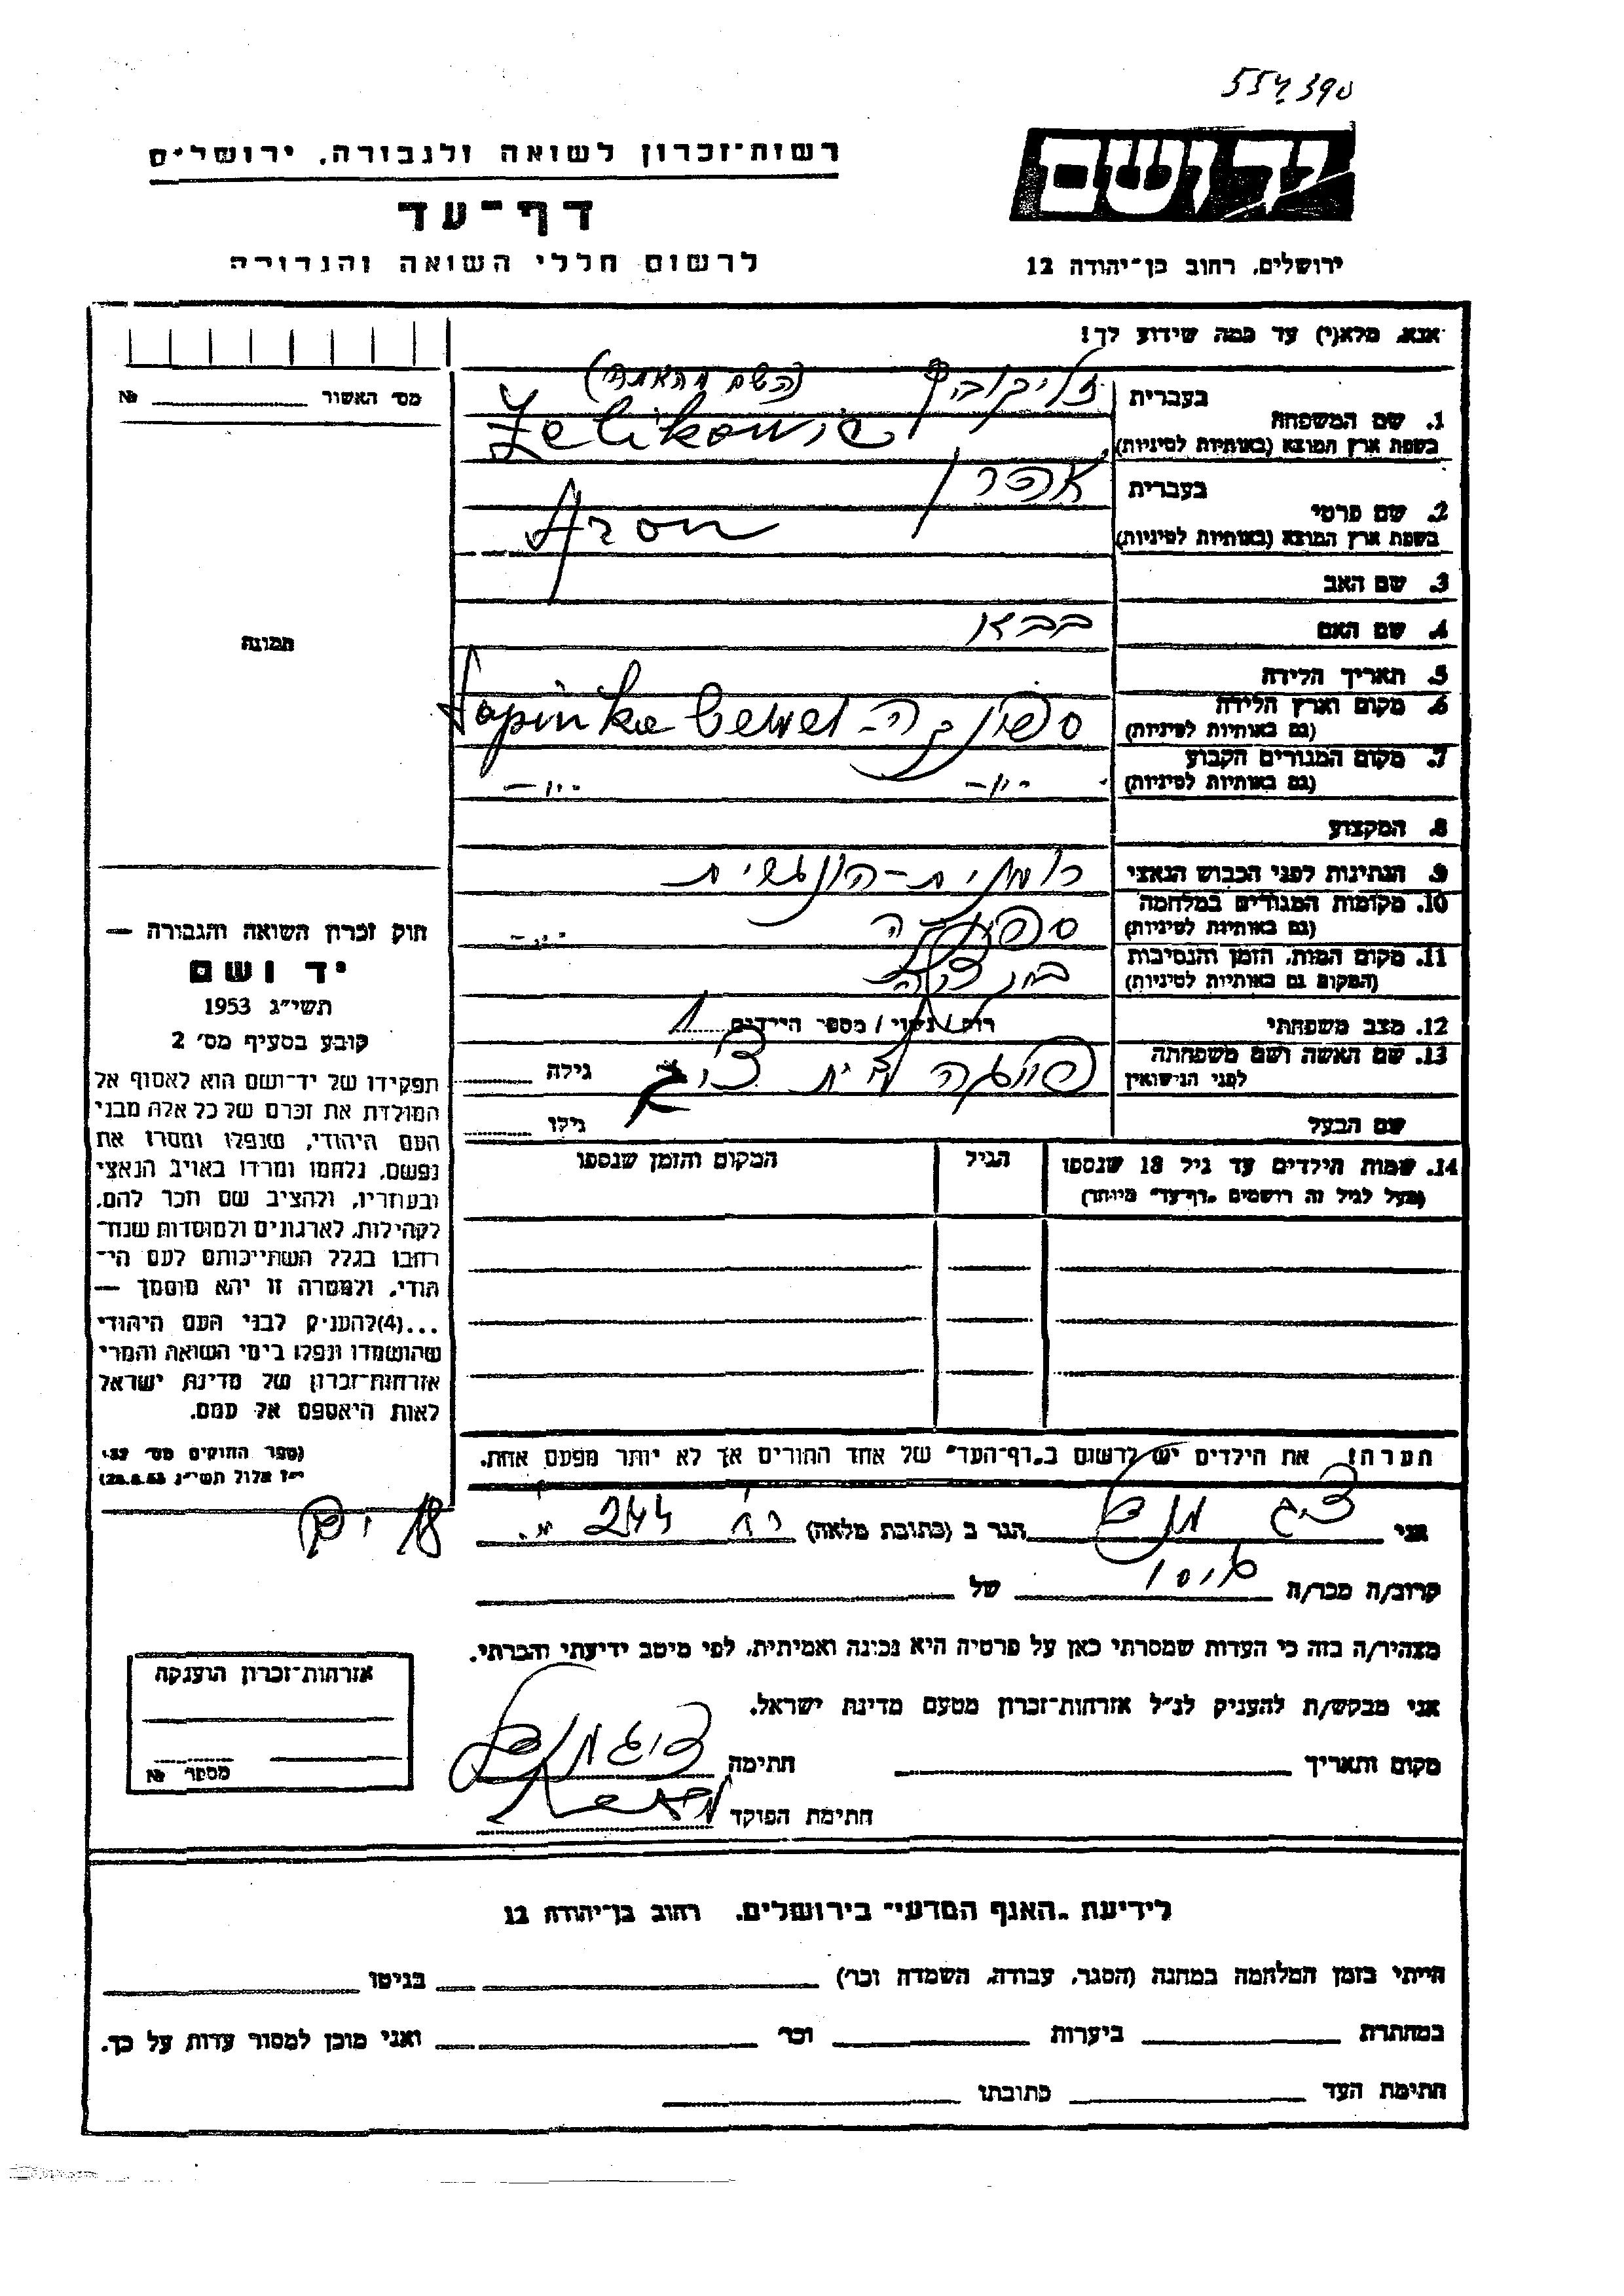 554390
רשות-זכרון לשואה ולגבורה, ירושלים
יד ושם
דף-עד
לרשום חללי השואה והגבורה
ירושלים, רחוב בן-יהודה 12
אנא, מלא(י) עד כמה שידוע לך!
מס' האשור № 
1. שם המשפחה
בעברית
זליקוביץ
בשפת ארץ המוצא (באותיות לטיניות)
Zelikowic
2. שם פרטי
בעברית
אהרן
בשפת ארץ המוצא (באותיות לטיניות)
Aron
3. שם האב
4. שם האם
תמונה
5. תאריך הלידה
6. מקום וארץ הלידה
(גם באותיות לטיניות)
ספינקה - Sapinka
7. מקום המגורים הקבוע
(גם באותיות לטיניות)
-"- -"-
8. המקצוע
9. הנתינות לפני הכבוש הנאצי
רומנית-הונגרית
10. מקומות המגורים במלחמה
(גם באותיות לטיניות)
ספינקה -"-
11. מקום המות, הזמן והנסיבות
(המקום גם באותיות לטיניות)
12. מצב משפחתי
רוק / נשוי / מספר הילדים 1
13. שם האשה ושם משפחתה
לפני הנישואין
גילה
שם הבעל
גילו
14. שמות הילדים עד גיל 18 שנספו
(מעל לגיל זה רושמים "דף-עד" מיוחד)
הגיל
המקום והזמן שנספו
חוק זכרון השואה והגבורה —
יד ושם
תשי"ג 1953
קובע בסעיף מס' 2
תפקידו של יד-ושם הוא לאסוף אל
המולדת את זכרם של כל אלה מבני
העם היהודי, שנפלו ומסרו את
נפשם, נלחמו ומרדו באויב הנאצי
ובעוזריו, ולהציב שם וזכר להם,
לקהילות, לארגונים ולמוסדות שנח-
רבו בגלל השתייכותם לעם הי-
הודי, ולמטרה זו יהא מוסמך —
...(4)להעניק לבני העם היהודי
שהושמדו ונפלו בימי השואה והמרי
אזרחות-זכרון של מדינת ישראל
לאות היאספם אל עמם.
(ספר החוקים מס' 132,
י"ז אלול תשי"ג 28.8.53)
הערה! את הילדים יש לרשום ב"דף-העד" של אחד ההורים אך לא יותר מפעם אחת.
אני
הגר ב (כתובת מלאה)
244
קרוב/ה מכר/ה
גיסו
של
מצהיר/ה בזה כי העדות שמסרתי כאן על פרטיה היא נכונה ואמיתית, לפי מיטב ידיעתי והכרתי.
אני מבקש/ת להעניק לנ"ל אזרחות-זכרון מטעם מדינת ישראל.
מקום ותאריך
חתימה
חתימת הפוקד
אזרחות-זכרון הוענקה
מספר №
לידיעת "האגף המדעי" בירושלים, רחוב בן-יהודה 12
הייתי בזמן המלחמה במחנה (הסגר, עבודה, השמדה וכר')
בגיטו
במחתרת
ביערות
וכר'
ואני מוכן למסור עדות על כך.
חתימת העד
כתובתו